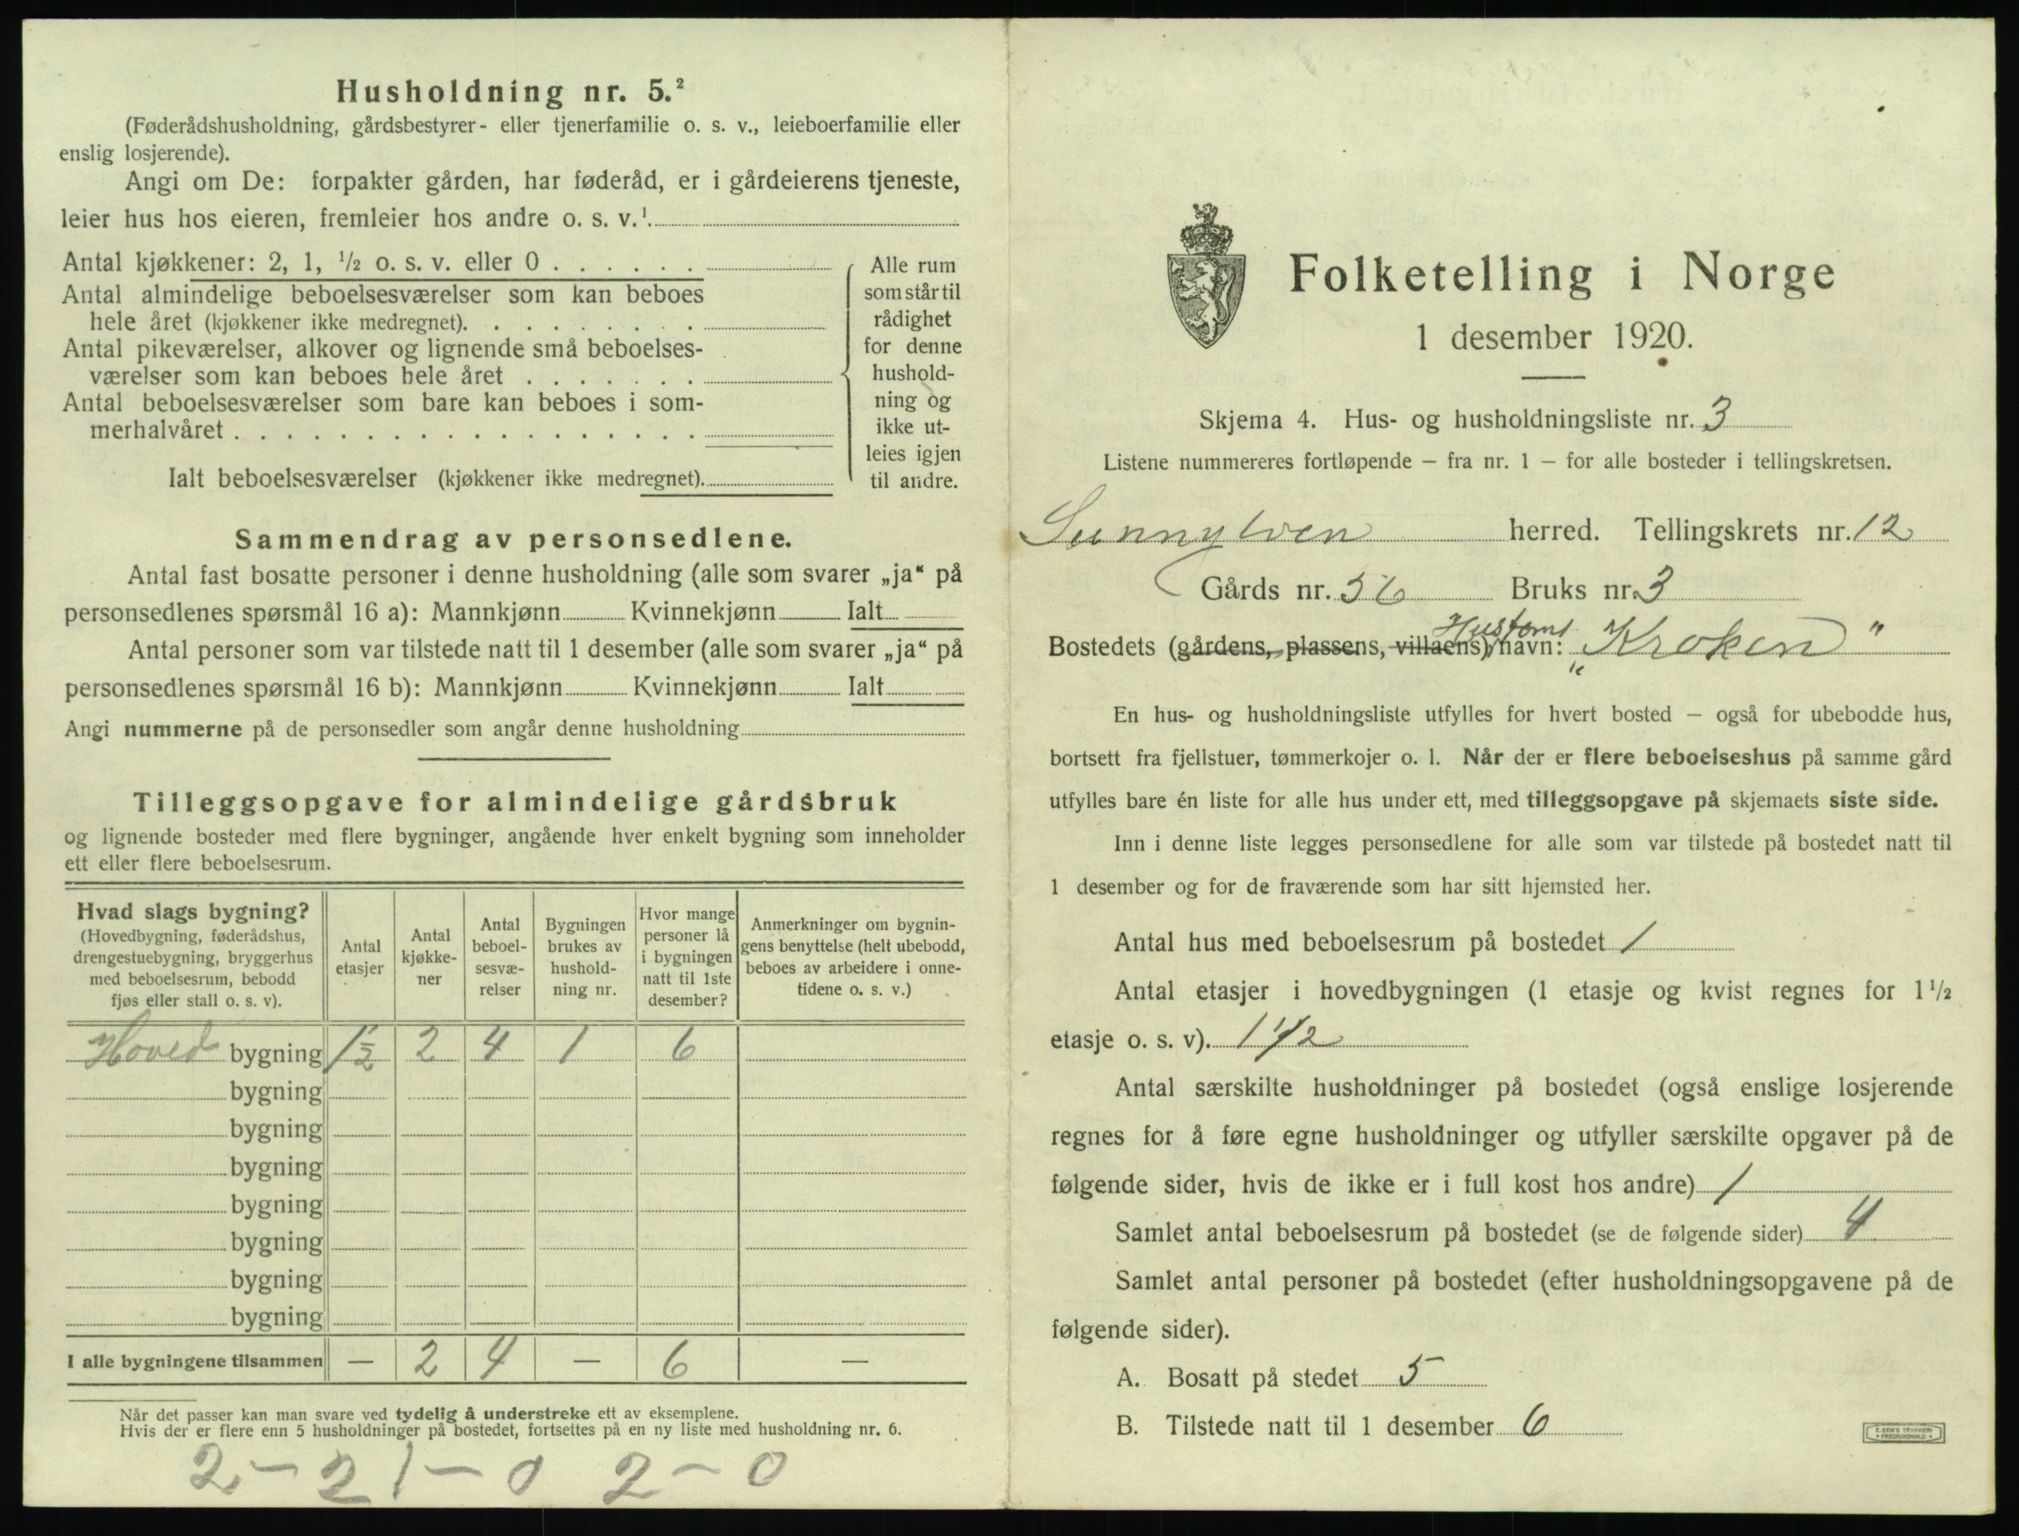 Husholdning nr. 5.²
(Føderådshusholdning, gårdsbestyrer- eller tjenerfamilie o. s. v., leieboerfamilie eller
enslig losjerende).
Angi om De: forpakter gården, har føderåd, er i gårdeierens tjeneste,
leier hus hos eieren, fremleier hos andre o. s. v.¹
Antal kjøkkener: 2, 1, ½ o. s. v. eller 0 . . . . . .
Antal almindelige beboelsesværelser som kan beboes
hele året (kjøkkener ikke medregnet). . . . . . . . .
Antal pikeværelser, alkover og lignende små beboelses-
værelser som kan beboes hele året . . . . . . .
Antal beboelsesværelser som bare kan beboes i som-
merhalvåret . . . . . . . . . . . . . . . . . .
Ialt beboelsesværelser (kjøkkener ikke medregnet).
Alle rum
som står til
rådighet
for denne
hushold-
ning og
ikke ut-
leies igjen
til andre.
Sammendrag av personsedlene.
Antal fast bosatte personer i denne husholdning (alle som svarer „ja“ på
personsedlenes spørsmål 16 a): Mannkjønn Kvinnekjønn Ialt
Antal personer som var tilstede natt til 1 desember (alle som svarer „ja“ på
personsedlenes spørsmål 16 b): Mannkjønn Kvinnekjønn Ialt
Angi nummerne på de personsedler som angår denne husholdning
Tilleggsopgave for almindelige gårdsbruk
og lignende bosteder med flere bygninger, angående hver enkelt bygning som inneholder
ett eller flere beboelsesrum.
Hvad slags bygning?
(Hovedbygning, føderådshus,
drengestuebygning, bryggerhus
med beboelsesrum, bebodd
fjøs eller stall o. s. v).
Antal
etasjer
Antal
kjøkke-
ner
Antal
beboel-
sesvæ-
relser
Bygningen
brukes av
hushold-
ning nr.
Hvor mange
personer lå
i bygningen
natt til 1ste
desember?
Anmerkninger om bygnin-
gens benyttelse (helt ubebodd,
beboes av arbeidere i onne-
tidene o. s. v.)
Hoved bygning 1½ 2 4 1 6
bygning
bygning
bygning
bygning
bygning
bygning
bygning
I alle bygningene tilsammen — 2 4 — 6 —
Når det passer kan man svare ved tydelig å understreke ett av eksemplene.
Hvis der er flere enn 5 husholdninger på bostedet, fortsettes på en ny liste med husholdning nr. 6.
2 - 2 1 - 0 2 - 0
Folketelling i Norge
1 desember 1920.
Skjema 4. Hus- og husholdningsliste nr. 3
Listene nummereres fortløpende – fra nr. 1 – for alle bosteder i tellingskretsen.
Sunnylven herred. Tellingskrets nr. 12
Gårds nr. 56 Bruks nr. 3
Hustomt
Bostedets (gårdens, plassens, villaens) navn: „Kroken"
En hus- og husholdningsliste utfylles for hvert bosted – også for ubebodde hus,
bortsett fra fjellstuer, tømmerkojer o. l. Når der er flere beboelseshus på samme gård
utfylles bare én liste for alle hus under ett, med tilleggsopgave på skjemaets siste side.
Inn i denne liste legges personsedlene for alle som var tilstede på bostedet natt til
1 desember og for de fraværende som har sitt hjemsted her.
Antal hus med beboelsesrum på bostedet 1
Antal etasjer i hovedbygningen (1 etasje og kvist regnes for 1½
etasje o. s. v). 1½
Antal særskilte husholdninger på bostedet (også enslige losjerende
regnes for å føre egne husholdninger og utfyller særskilte opgaver på de
følgende sider, hvis de ikke er i full kost hos andre) 1
Samlet antal beboelsesrum på bostedet (se de følgende sider) 4
Samlet antal personer på bostedet (efter husholdningsopgavene på de
følgende sider).
A. Bosatt på stedet 5
B. Tilstede natt til 1 desember 6